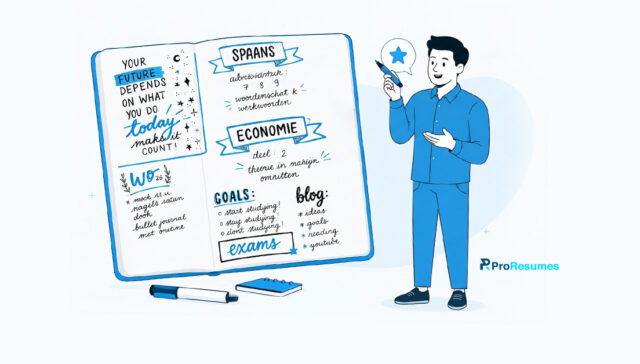 YOUR
FUTURE
DEPENDS
ON WHAT
YOU DO
today
makes it
COUNT!
WO 26
* mock it u
nagels satan
dook
bullet journal
met onetine
SPAANS
7 8 9
woordenschat k
werkwoorden
ECONOMIE
deel: 2
theorie in marijn
omnitten
GOALS:
start studying!
stay studying!
dont studying!
exams
blog:
* ideas
* goals
* reading
* youtube
ProResumes